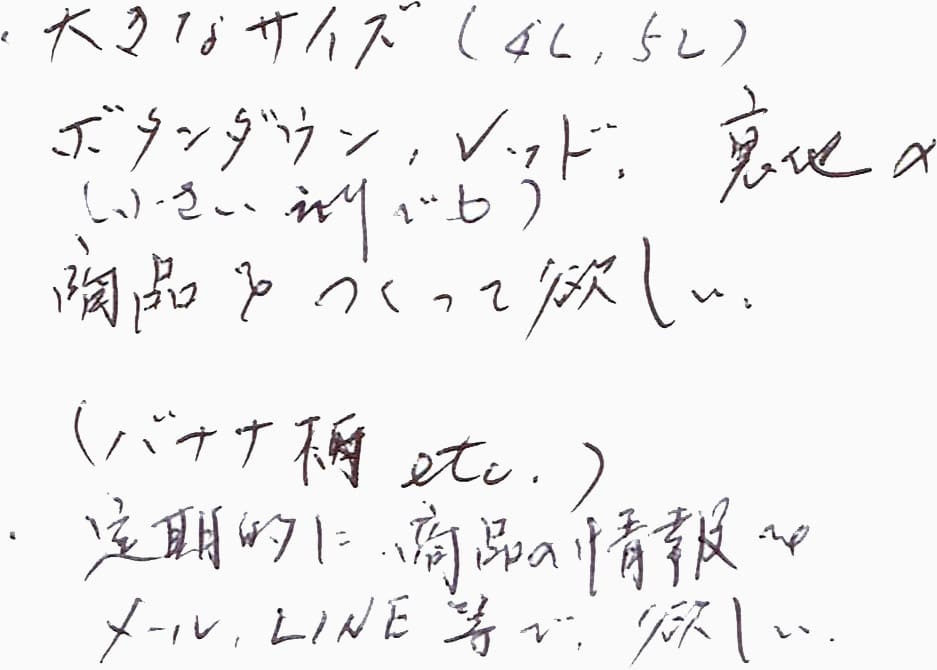 ・大きなサイズ(4L, 5L)
ボタンダウン, レッド. 裏地の
(小さい衿でも)
商品をつくって欲しい.
(バナナ柄 etc.)
・定期的に商品の情報を
メール, LINE等で, 欲しい.